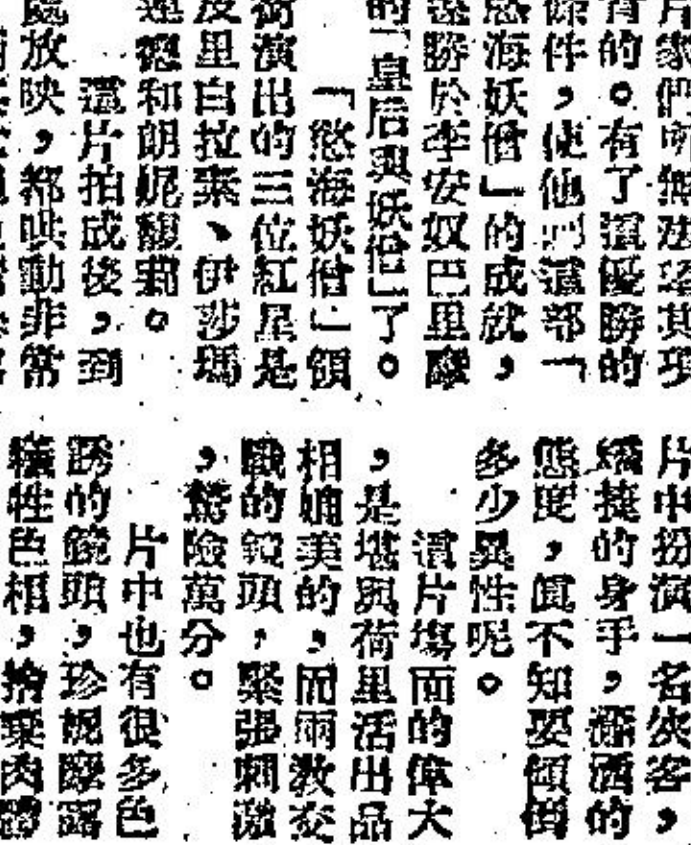 片家們所無法逕其項
有的。有了這優勝的
條件,使他們這部「
慾海妖僧」的成就,
遠勝於李安奴巴里摩
的「皇后與妖僧」了。
「慾海妖僧」領
銜演出的三位紅星是
皮里白拉素、伊莎瑪
連德和朗妮馥莉。
這片拍成後,到
處放映,都哄動非常
片中扮演一名俠客,
矯捷的身手,瀟洒的
態度,眞不知要傾倒
多少異性呢。
這片塲面的偉大
,是堪與荷里活出品
相媲美的,而兩敎交
戰的鏡頭,緊張刺激
,驚險萬分。
片中也有很多色
誘的鏡頭,珍妮摩露
犧牲色相,捨棄肉體